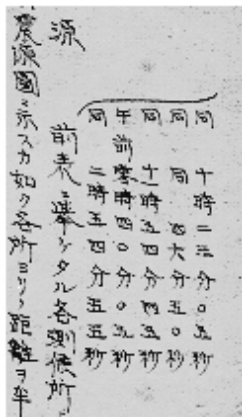 同 十時二三分〇五秒
同 同 四六分五〇秒
同 十一時五四分四五秒
午前零時四〇分〇五秒
同 二時五四分五五秒
前表ニ挙ゲタル各測候所
源
震源圖ニ示スカ如ク各所ヨリノ距離ヲ半